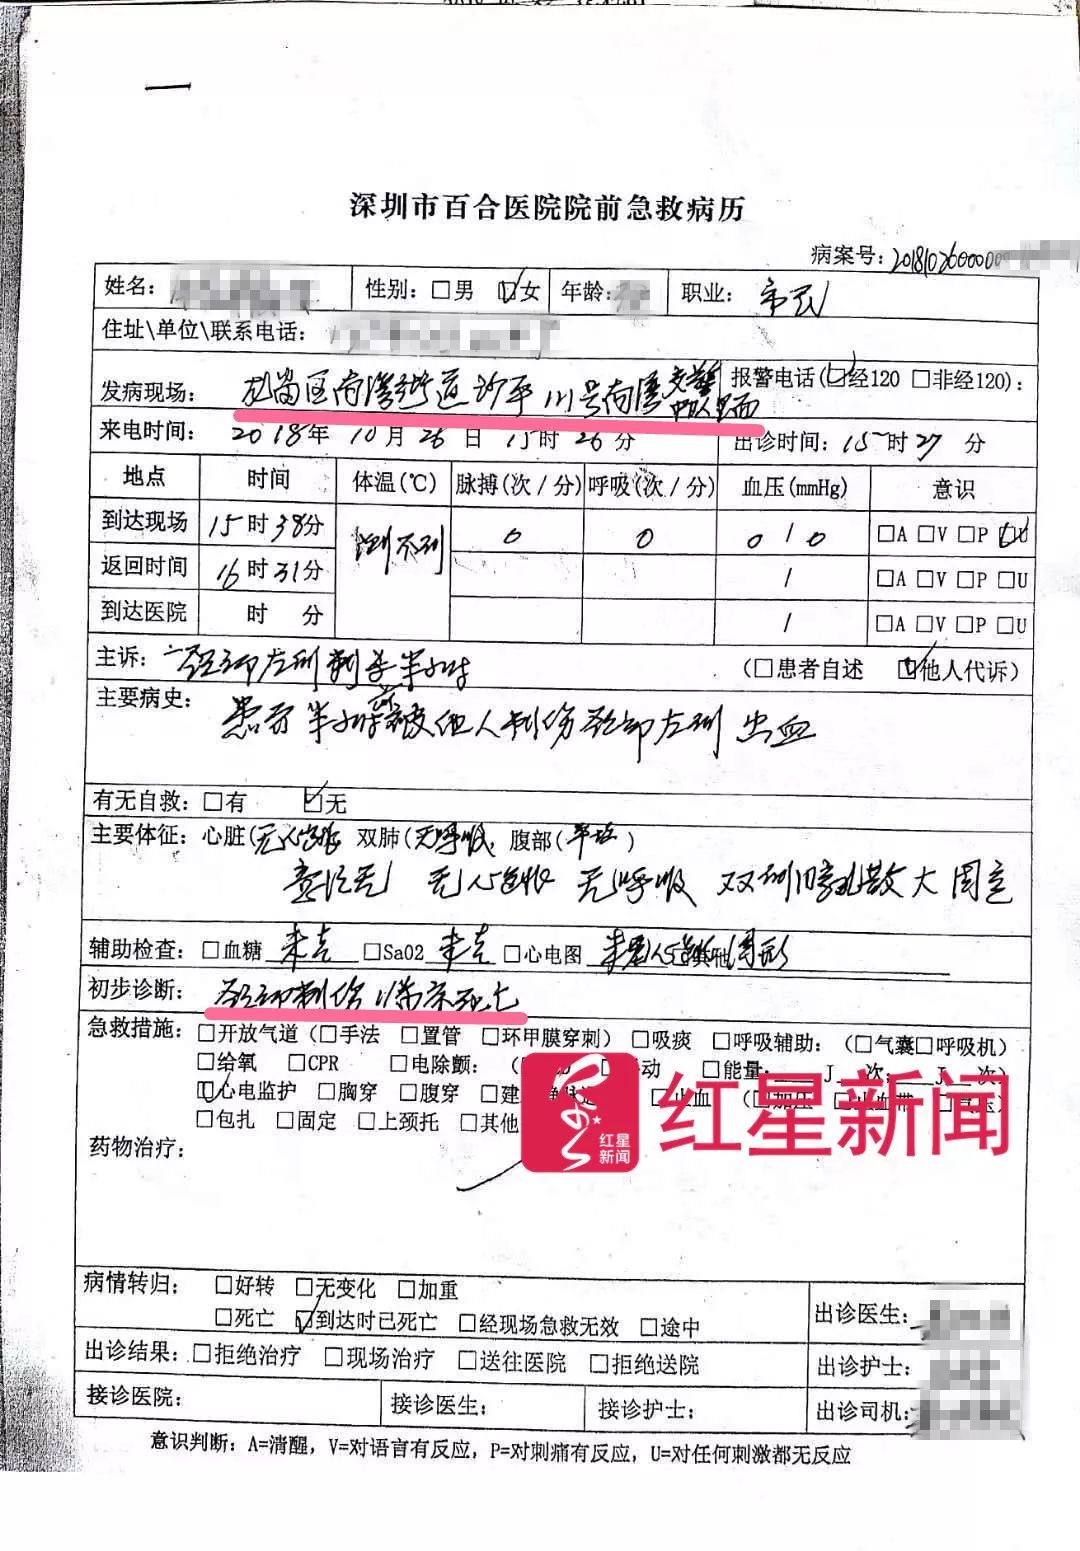 深圳市百合医院院前急救病历
病案号:20181026000000
姓名: 性别:□男 ☑女 年龄: 职业: 市民
住址\单位\联系电话:
发病现场: 龙岗区南湾街道沙平 号南湾交警中队里面 报警电话(☑经120 □非经120):
来电时间: 2018年 10月 26日 15时 26分 出诊时间: 15时 27分
地点 时间 体温(℃) 脉搏(次/分) 呼吸(次/分) 血压(mmHg) 意识
到达现场 15时38分 测不到 0 0 0/0 □A □V □P ☑U
返回时间 16时31分 / □A □V □P □U
到达医院 时 分 / □A □V □P □U
主诉: 颈部左侧刺伤半小时 (□患者自述 ☑他人代诉)
主要病史: 患者半小时前被他人刺伤颈部左侧 出血
有无自救: □有 ☑无
主要体征: 心脏(无心音 双肺(无呼吸 腹部(平坦)
意识无 无心跳 无呼吸 双侧瞳孔散大固定
辅助检查: □血糖 未克 □SaO2 未克 □心电图
初步诊断: 颈部刺伤 临床死亡
急救措施: □开放气道(□手法 □置管 □环甲膜穿刺) □吸痰 □呼吸辅助: (□气囊□呼吸机)
□给氧 □CPR □电除颤: ( 动 □能量: J 次; J 次)
☑心电监护 □胸穿 □腹穿 □建 静脉 □止血 (□加压 □止血带 □气压)
□包扎 □固定 □上颈托 □其他
红星新闻
红星
新闻
药物治疗:
病情转归: □好转 □无变化 □加重
□死亡 ☑到达时已死亡 □经现场急救无效 □途中 出诊医生:
出诊结果: □拒绝治疗 □现场治疗 □送往医院 □拒绝送院 出诊护士:
接诊医院: 接诊医生: 接诊护士: 出诊司机:
意识判断: A=清醒, V=对语言有反应, P=对刺痛有反应, U=对任何刺激都无反应